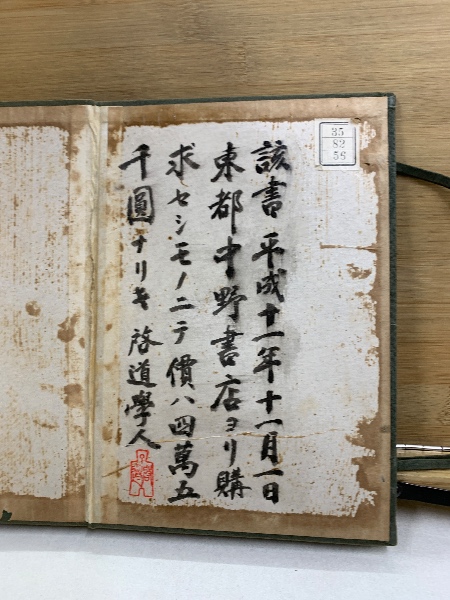 該書平成十一年十一月一日
東都中野書店ヨリ購
求セシモノニテ價八四萬五
千圓ナリキ 啓道學人
35
82
56